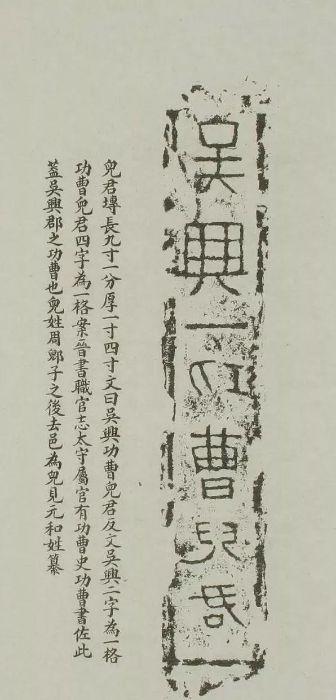 吳興功曹兒君
兒君塼長九寸一分厚一寸四寸文曰吳興功曹兒君反文吳興二字為一格
功曹兒君四字為一格案晉書職官志太守屬官有功曹史功曹書佐此
蓋吳興郡之功曹也兒姓周郳子之後去邑為兒見元和姓纂